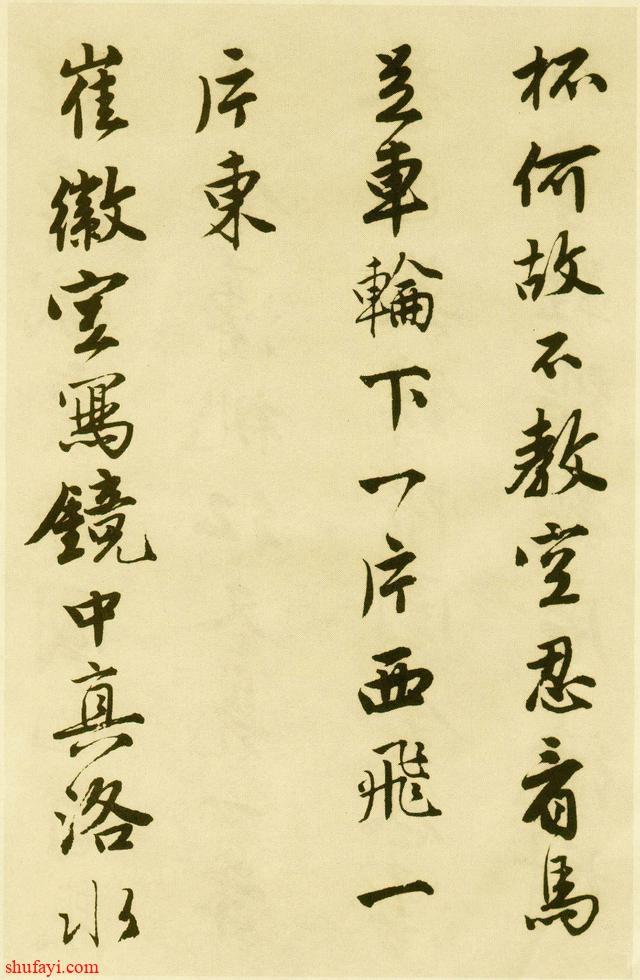 杯何故不教空忍看馬
足車輪下一片西飛一
片東
崔徽寫鏡中真洛水
shufayi.com